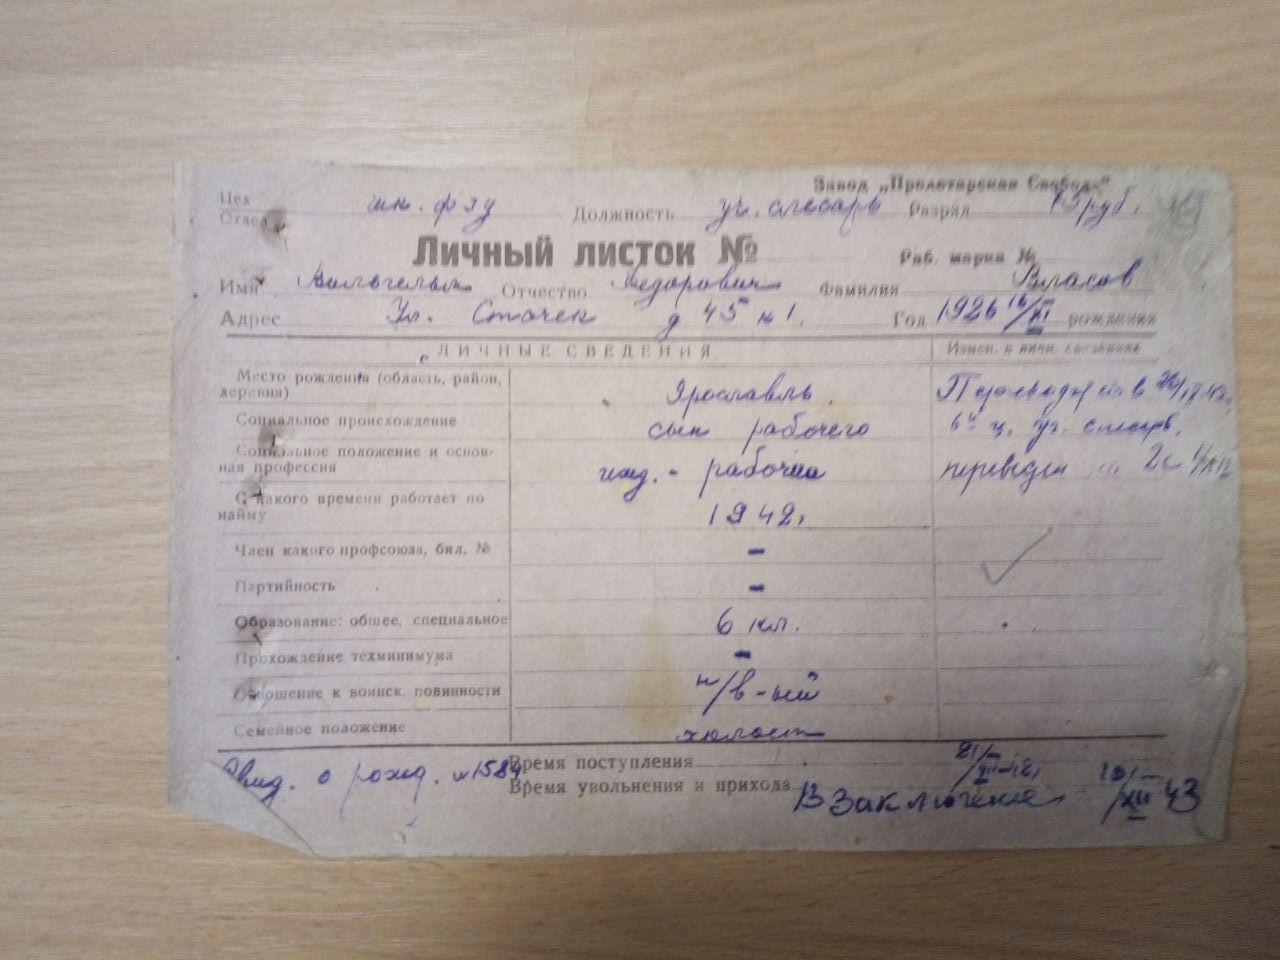 Завод „Пролетарская Свобода"
Цех шк. фзу Должность уч. слесарь Разряд 75 руб.
Отдел
Личный листок № Раб. марка №
Имя Вильгельм Отчество Федорович Фамилия Власов
Адрес Ул. Стачек д 45 к 1. Год 1926 16/XI рождения
ЛИЧНЫЕ СВЕДЕНИЯ Измен. в личн. сведениях
Место рождения (область, район, деревня) Ярославль. Переводится в
Социальное происхождение сын рабочего 6й ц. уч. слесаря.
Социальное положение и основная профессия инд. - рабочий переведен
С какого времени работает по найму 1942,
Член какого профсоюза, бил. № -
Партийность -
Образование: общее, специальное 6 кл.
Прохождение техминимума -
Отношение к воинск. повинности н/в-ный
Семейное положение холост
Время поступления 21/VII-42,
Свид. о рожд. №1584 Время увольнения и прихода В Заключение 10/XII 43